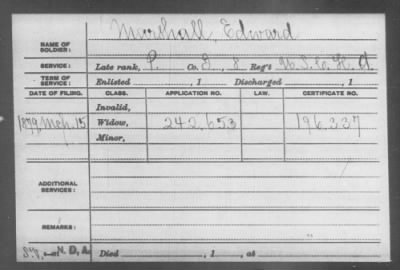 Marshall, Edward
NAME OF SOLDIER:
SERVICE: Late rank, P. Co. G, 8 Reg't U.S.C. H. A.
TERM OF SERVICE: Enlisted , 1 Discharged , 1
DATE OF FILING. CLASS. APPLICATION NO. LAW. CERTIFICATE NO.
Invalid,
1879, Mch, 15 Widow, 242.653 196.337
Minor,
ADDITIONAL SERVICES:
REMARKS:
N. D. A. Died , 1 , at